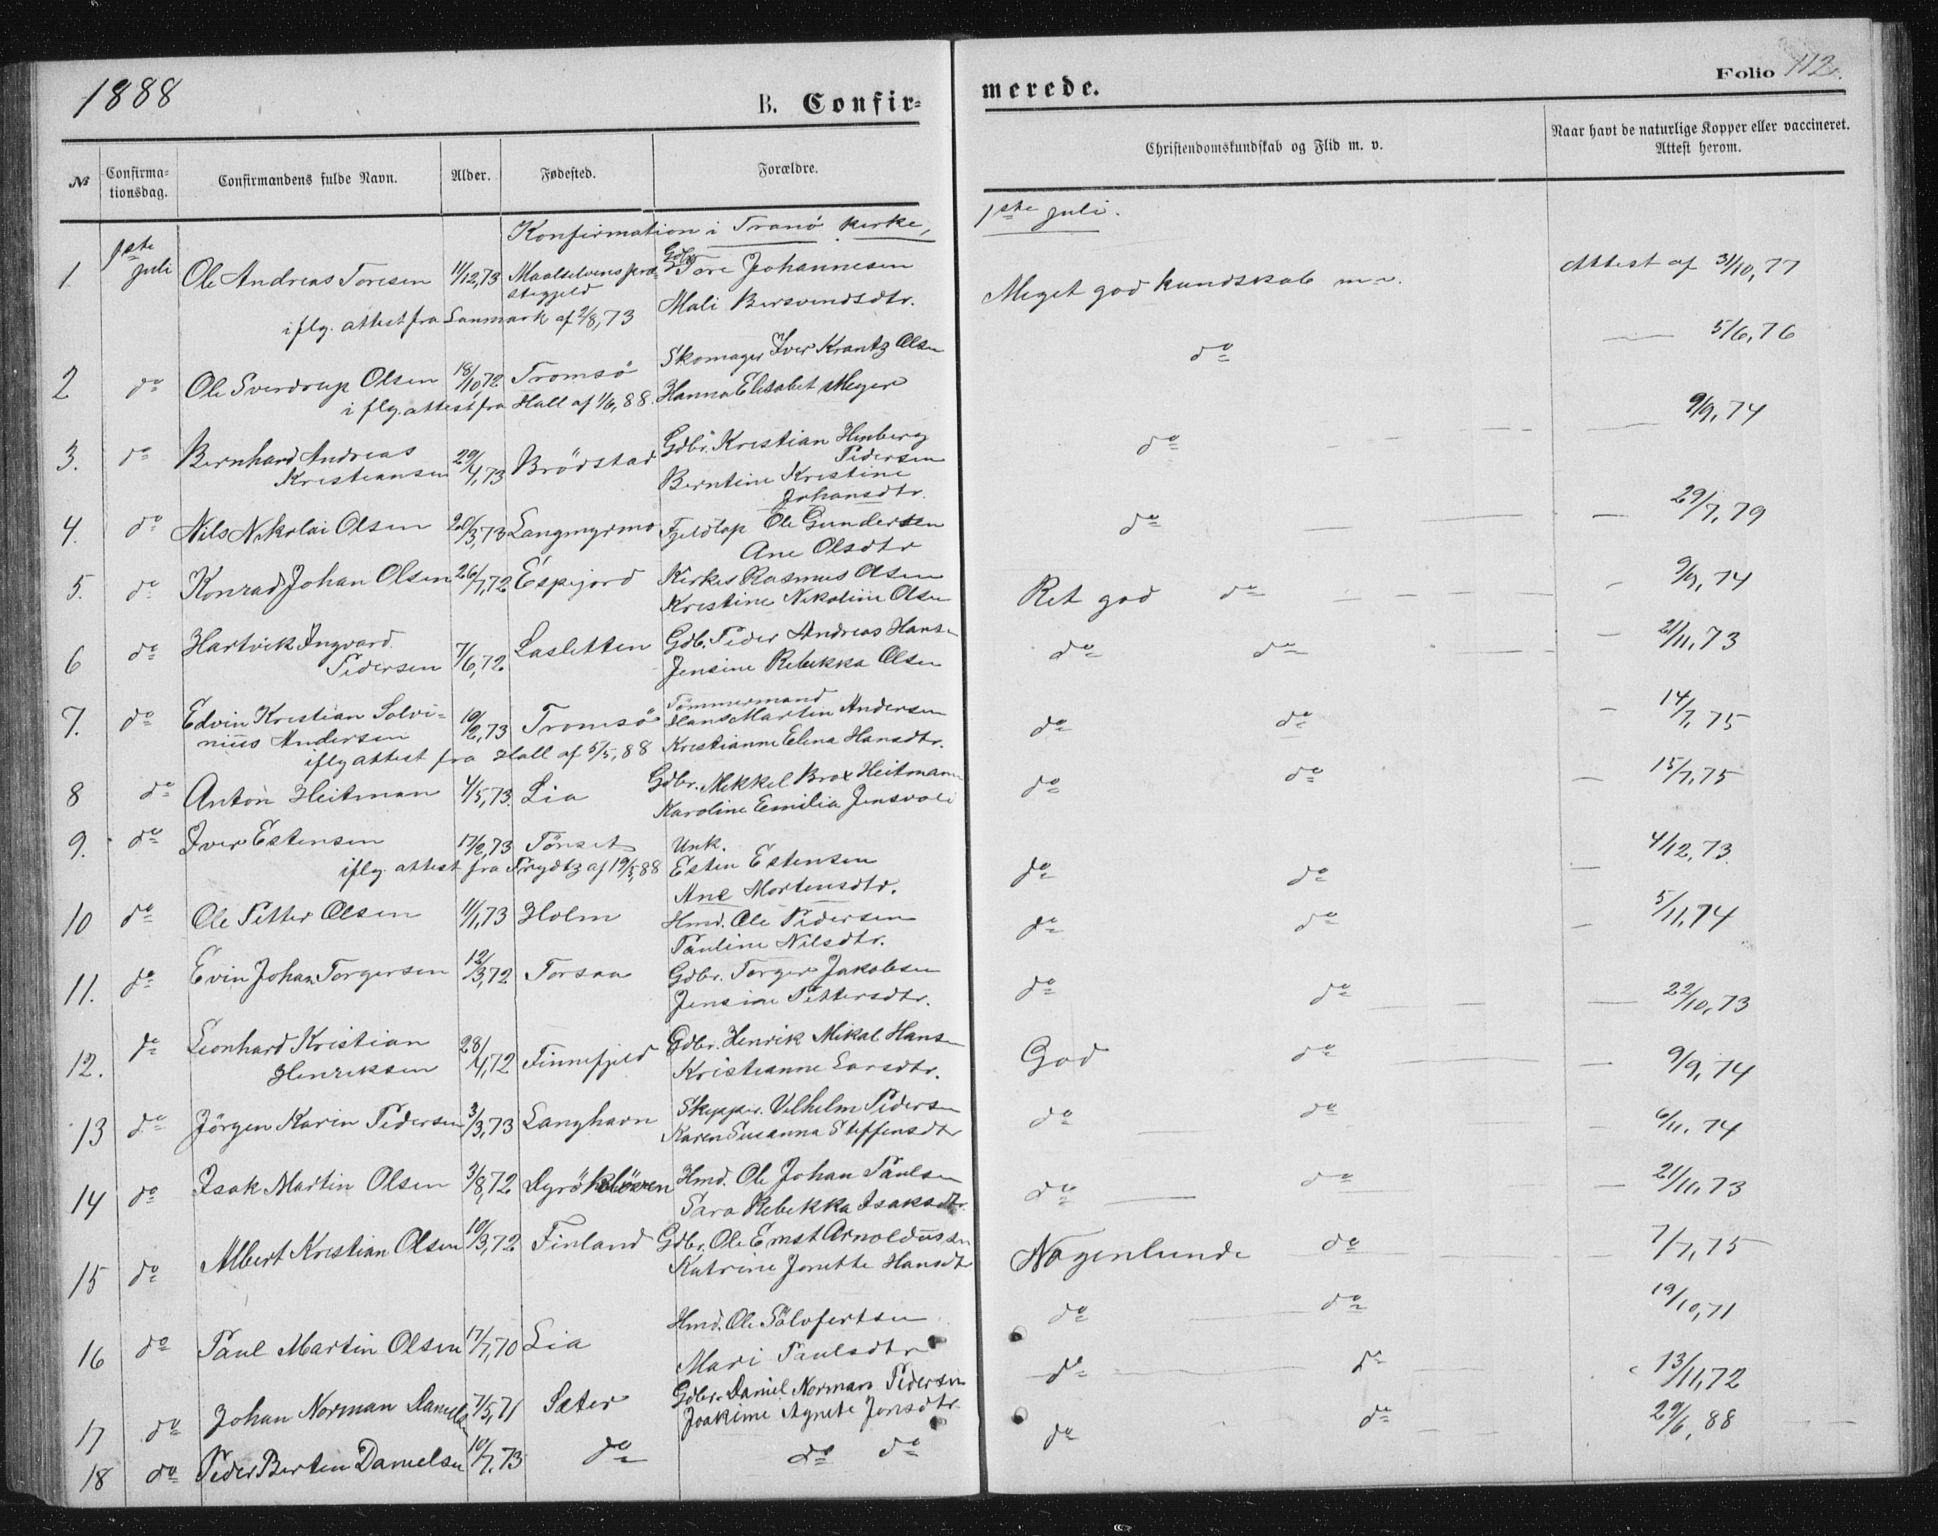 1888
B. Confir-
merede.
Folio 112.
№ Confirma-tionsdag. Confirmandens fulde Navn. Alder. Fødested. Forældre. Christendomskundskab og Flid m. v. Naar havt de naturlige Kopper eller vaccineret. Attest herom.
Konfirmation i Tranö kirke, 1ste juli.
1 1ste juli Ole Andreas Toresen 11/12,73 Maalselvens præstegjeld Gdbr. Tore Johannesen Meget god kundskab Attest af 31/10,77
Mali Bersvendsdtr.
iflg. attest fra Lanmark af 2/8,73
2 do Ole Sverdrup Olsen 18/10,72 Tromsö Skomager Iver Krantz Olsen do — 5/6,76
i flg. attest fra Hall af 1/6,88. Hanna Elisabet Meyer
3. do Bernhard Andreas Kristiansen 29/4,73 Brödstad Gdbr. Kristian Pedersen do 9/9,74
Berntine Kristine Johansdtr.
4. do Nils Nikolai Olsen 20/3,73 Langmyrmo Fjeldlap Ole Gundersen do — 29/7,79
Ane Olsdtr
5. do Konrad Johan Olsen 26/7,72 Espejord Kirkes Rasmus Olsen Ret god do — 9/9,74
Kristine Nikoline Olsen
6 do Hartvik Ingvard Pedersen 7/6,72 Lasletten Gdb. Peder Andreas Hansn do do — 21/11,73
Jensine Rebekka Olsen
7. do Edvin Kristian Solvi-nius Andersen 19/2,73 Tromsö Tömmermand Hans Martin Andersen do do — 14/7,75
iflg attest fra Hall af 5/5,88 Kristianne Elena Hansdtr.
8 do Anton Heitman 4/5,73. Lia Gdbr. Mekkel Brox Heitmann do do — 15/7,75
Karoline Emilia Jensvoli
9. do Iver Estensen 17/2,73 Tønset Unk. do do — 4/12,73
iflg. attest fra Frydtz af 19/5,88 Esten Estensen
Ane Mortensdtr.
10 do Ole Petter Olsen 11/1,73 Holm Hmd. Ole Pedersen do do — 5/11,74
Pauline Nilsdtr.
11. do Evin Johan Torgersen 12/3,72 Torsaa Gdbr. Torger Jakobsen do do — 22/10,73
Jensine Pettersdtr.
12. do Leonhard Kristian Henriksen 28/4,72 Finnefjeld Gdbr. Henrik Mikal Hansn God do — 9/9,74
Kristianne Larsdtr.
13 do Jörgen Karin Pedersen 3/3,73 Langhavn Skipper. Vilhelm Pedersen do do 6/11,74
Karen Susanna Steffensdtr
14 do Isak Martin Olsen 3/8,72 Hmd. Ole Johan Paulsen do do — 21/11,73
Sara Rebekka Isaksdtr.
15 do Albert Kristian Olsen 10/3,72 Finland Gdbr. Ole Ernst Arnoldussen Nogenlunde do 7/7,75
Katrine Jonette Hansdtr
16 do Paul Martin Olsen 17/7,70 Lia Hmd. Ole Sölvfertsen do do 19/10,71
Mari Paulsdtr
17 do Johan Norman Daniels 7/5,71 Sæter Gdbr. Daniel Norman Pedersen do do 13/11,72
Joakime Agnete Jonsdtr.
18 do Peder Berten Danielsen 10/7,73 do do do do do 29/6,88